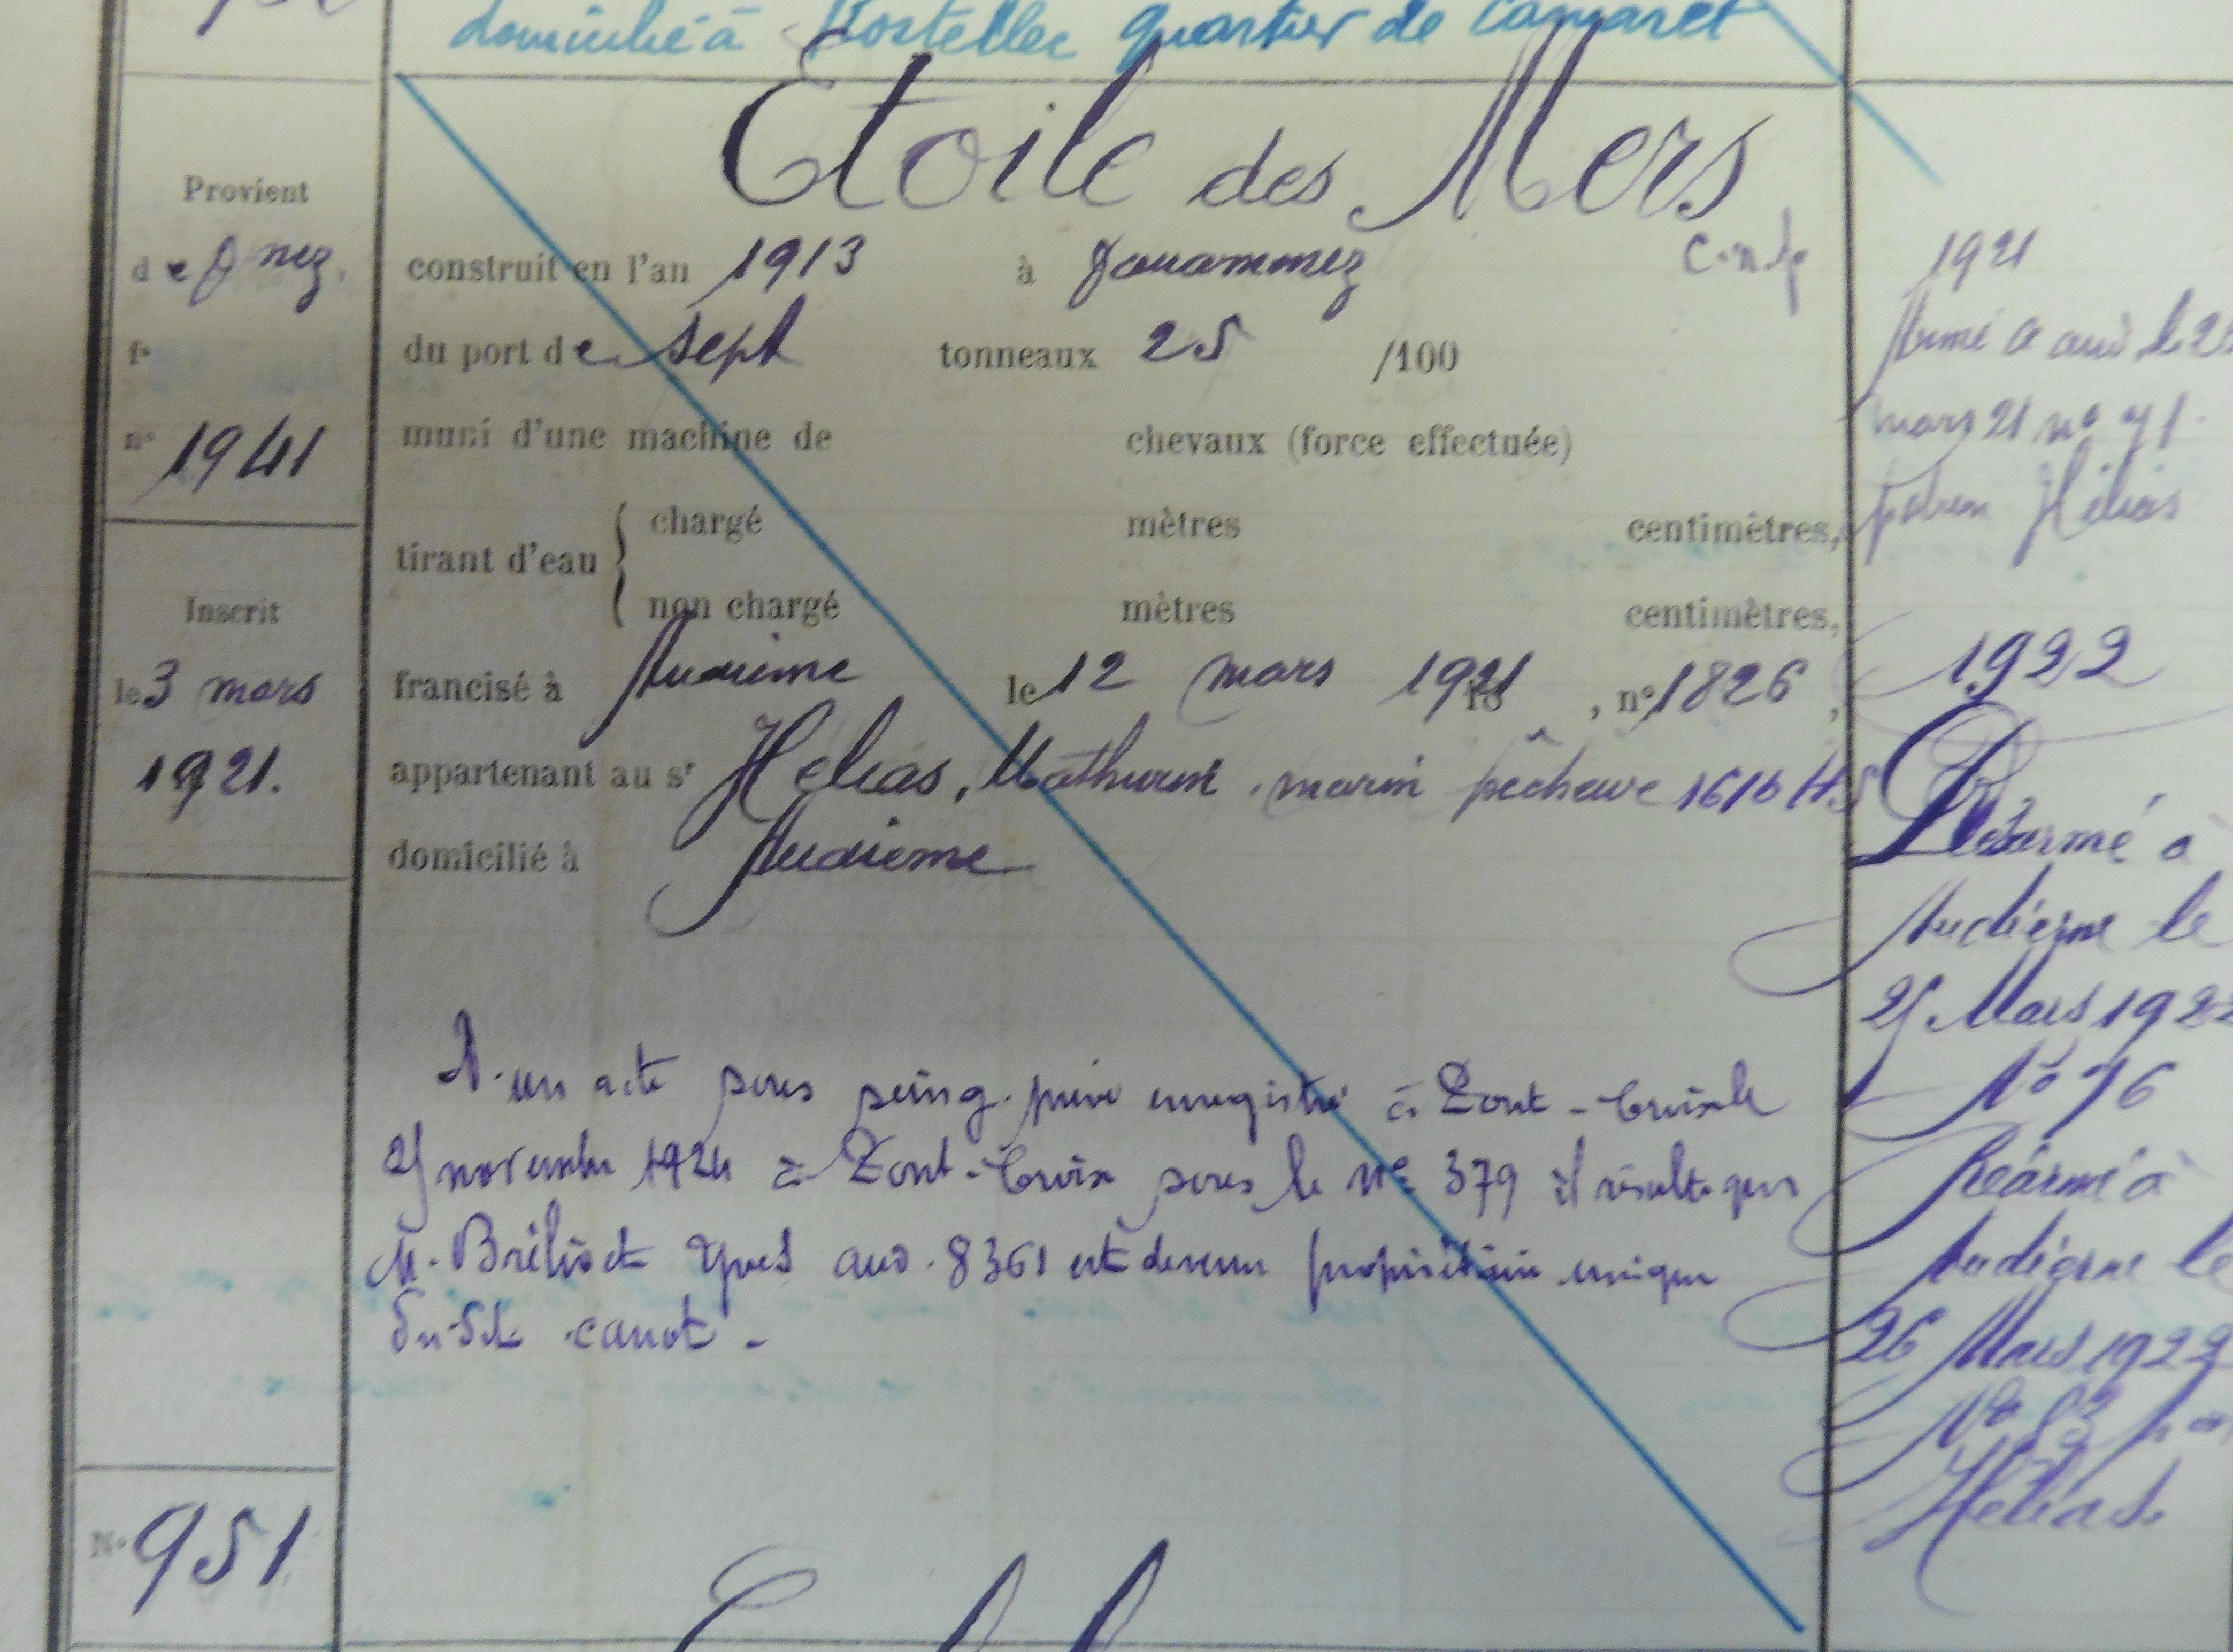 domicilié à Rostellec quartier de Camaret
Etoile des Mers
Provient
de Dnez.
construit en l'an 1913 à Douarnenez
du port de sept tonneaux 25 /100
f°
n° 1941
muni d'une machine de chevaux (force effectuée)
tirant d'eau
chargé mètres centimètres,
non chargé mètres centimètres,
Inscrit
le 3 mars
1921.
francisé à Audierne le 12 mars 1921 , n° 1826 ,
appartenant au sr Helias, Mathurin, marin pêcheur 1616 H.S
domicilié à Audierne
D'un acte sous seing privé enregistré à Pont-Croix le
25 novembre 1924 à Pont-Croix sous le N° 379 il résulte que
M. Brélivet Yves aud. 8361 est devenu propriétaire unique
du dit canot -
N° 951
1921
Armé à aud le
mars 21 n° 71
patron Hélias
1922
Désarmé à
Audierne le
25 Mars 1922
N° 76
Réarmé à
Audierne le
26 Mars 1922
N° 82
Hélias